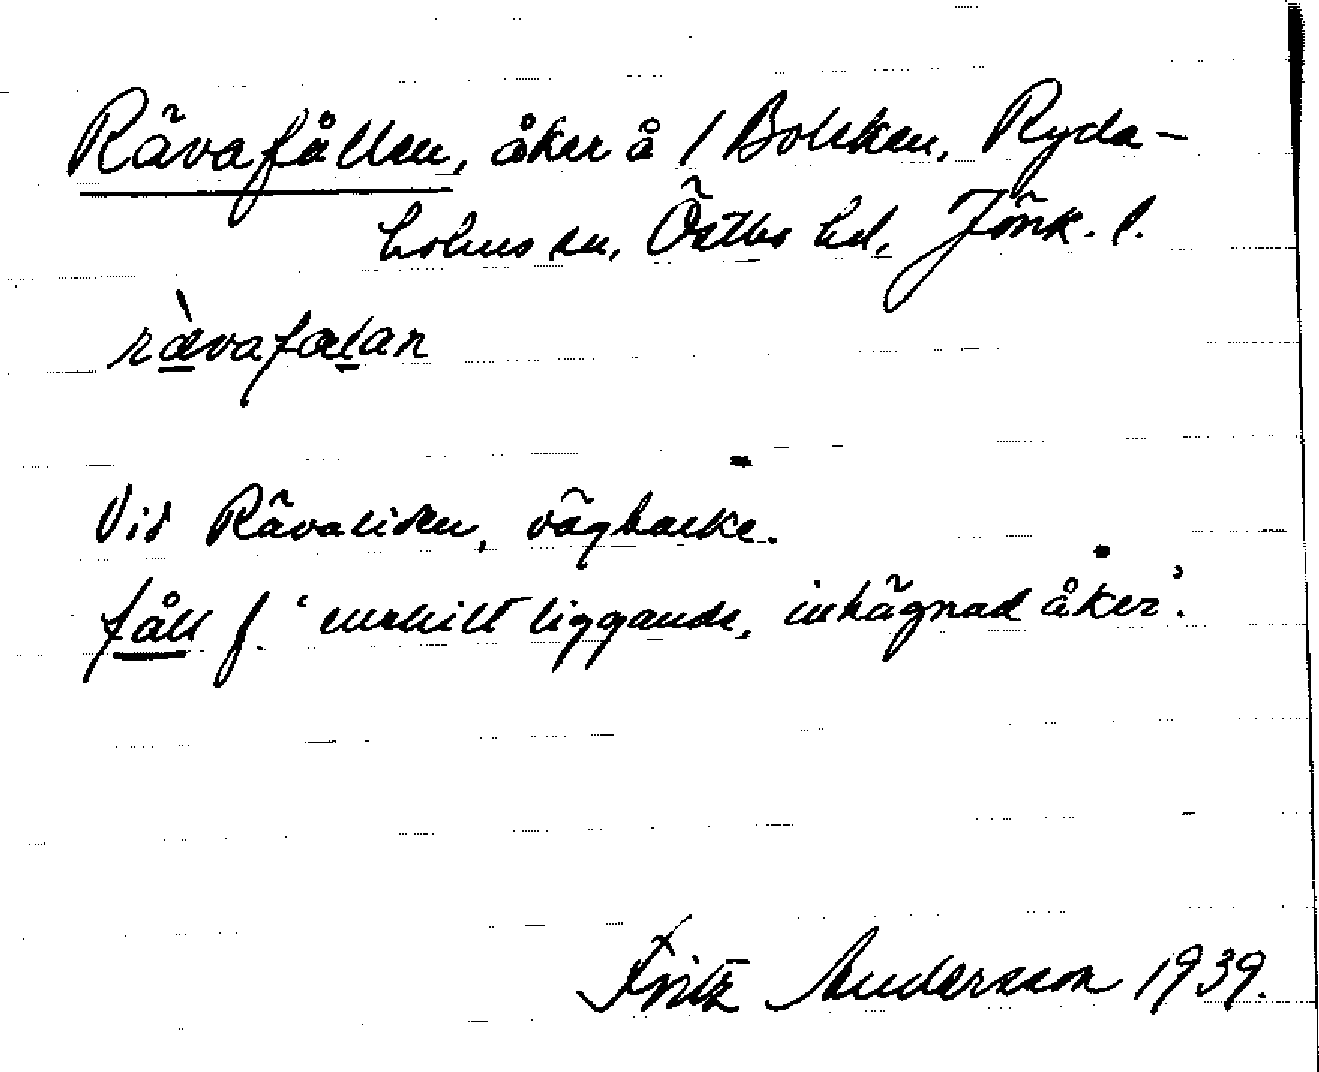 Rävafållen, åker å / Bolsken, Ryda-
holms sn, Östbo hd, Jönk. l.
rævafælan
Vid Rävaliden, vägbacke.
fåll f. ‘enskilt liggande, inhägnad åker’.
Fritz Andersson 1939.